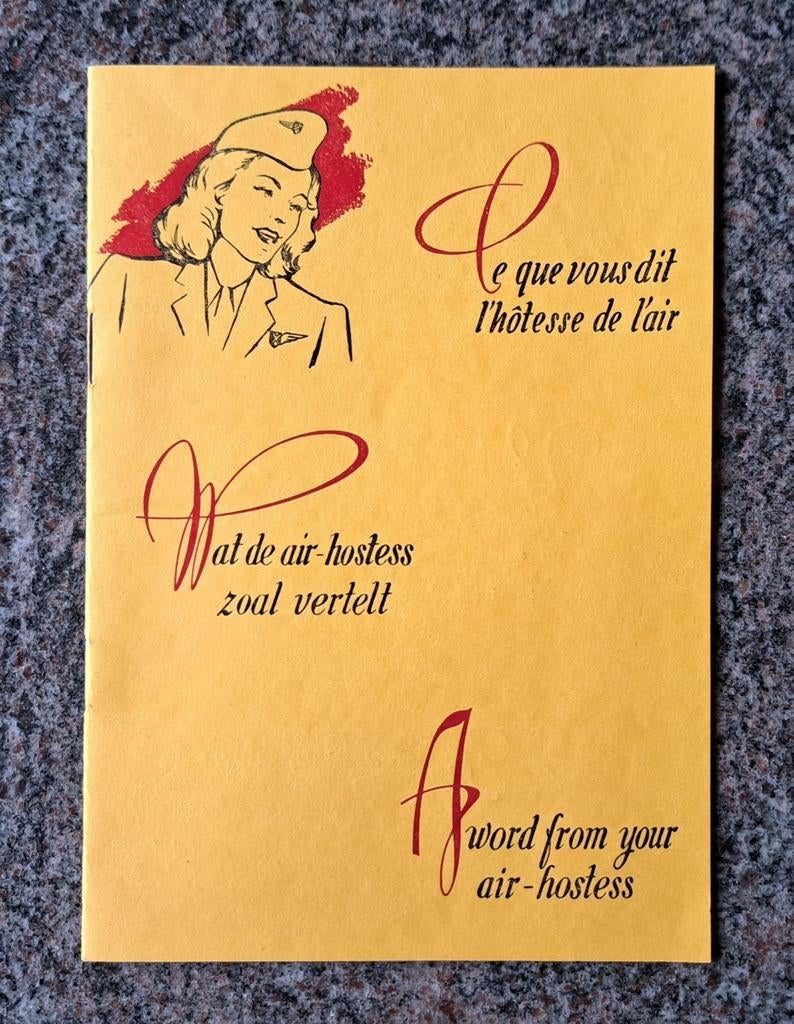 Ce que vous dit
l'hôtesse de l'air
Wat de air-hostess
zoal vertelt
A word from your
air-hostess